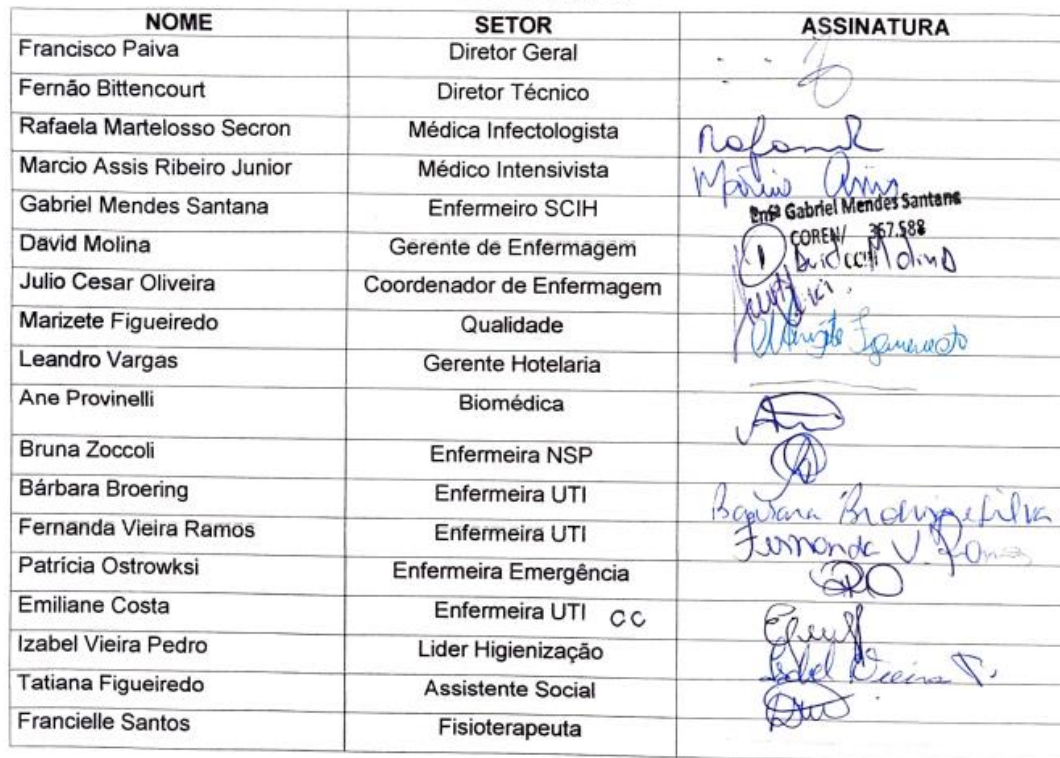 NOME SETOR ASSINATURA
Francisco Paiva Diretor Geral
Fernão Bittencourt Diretor Técnico
Rafaela Martelosso Secron Médica Infectologista
Marcio Assis Ribeiro Junior Médico Intensivista Marcio Assis
Gabriel Mendes Santana Enfermeiro SCIH Enfº Gabriel Mendes Santana
COREN/ 357.588
David Molina Gerente de Enfermagem David Molina
CCIH
Julio Cesar Oliveira Coordenador de Enfermagem
Marizete Figueiredo Qualidade Marizete Figueiredo
Leandro Vargas Gerente Hotelaria
Ane Provinelli Biomédica
Bruna Zoccoli Enfermeira NSP
Bárbara Broering Enfermeira UTI Barbara Broering e Silva
Fernanda Vieira Ramos Enfermeira UTI Fernanda V. Ramos
Patrícia Ostrowksi Enfermeira Emergência PO
Emiliane Costa Enfermeira UTI CC
Izabel Vieira Pedro Lider Higienização Izabel Vieira P.
Tatiana Figueiredo Assistente Social
Francielle Santos Fisioterapeuta